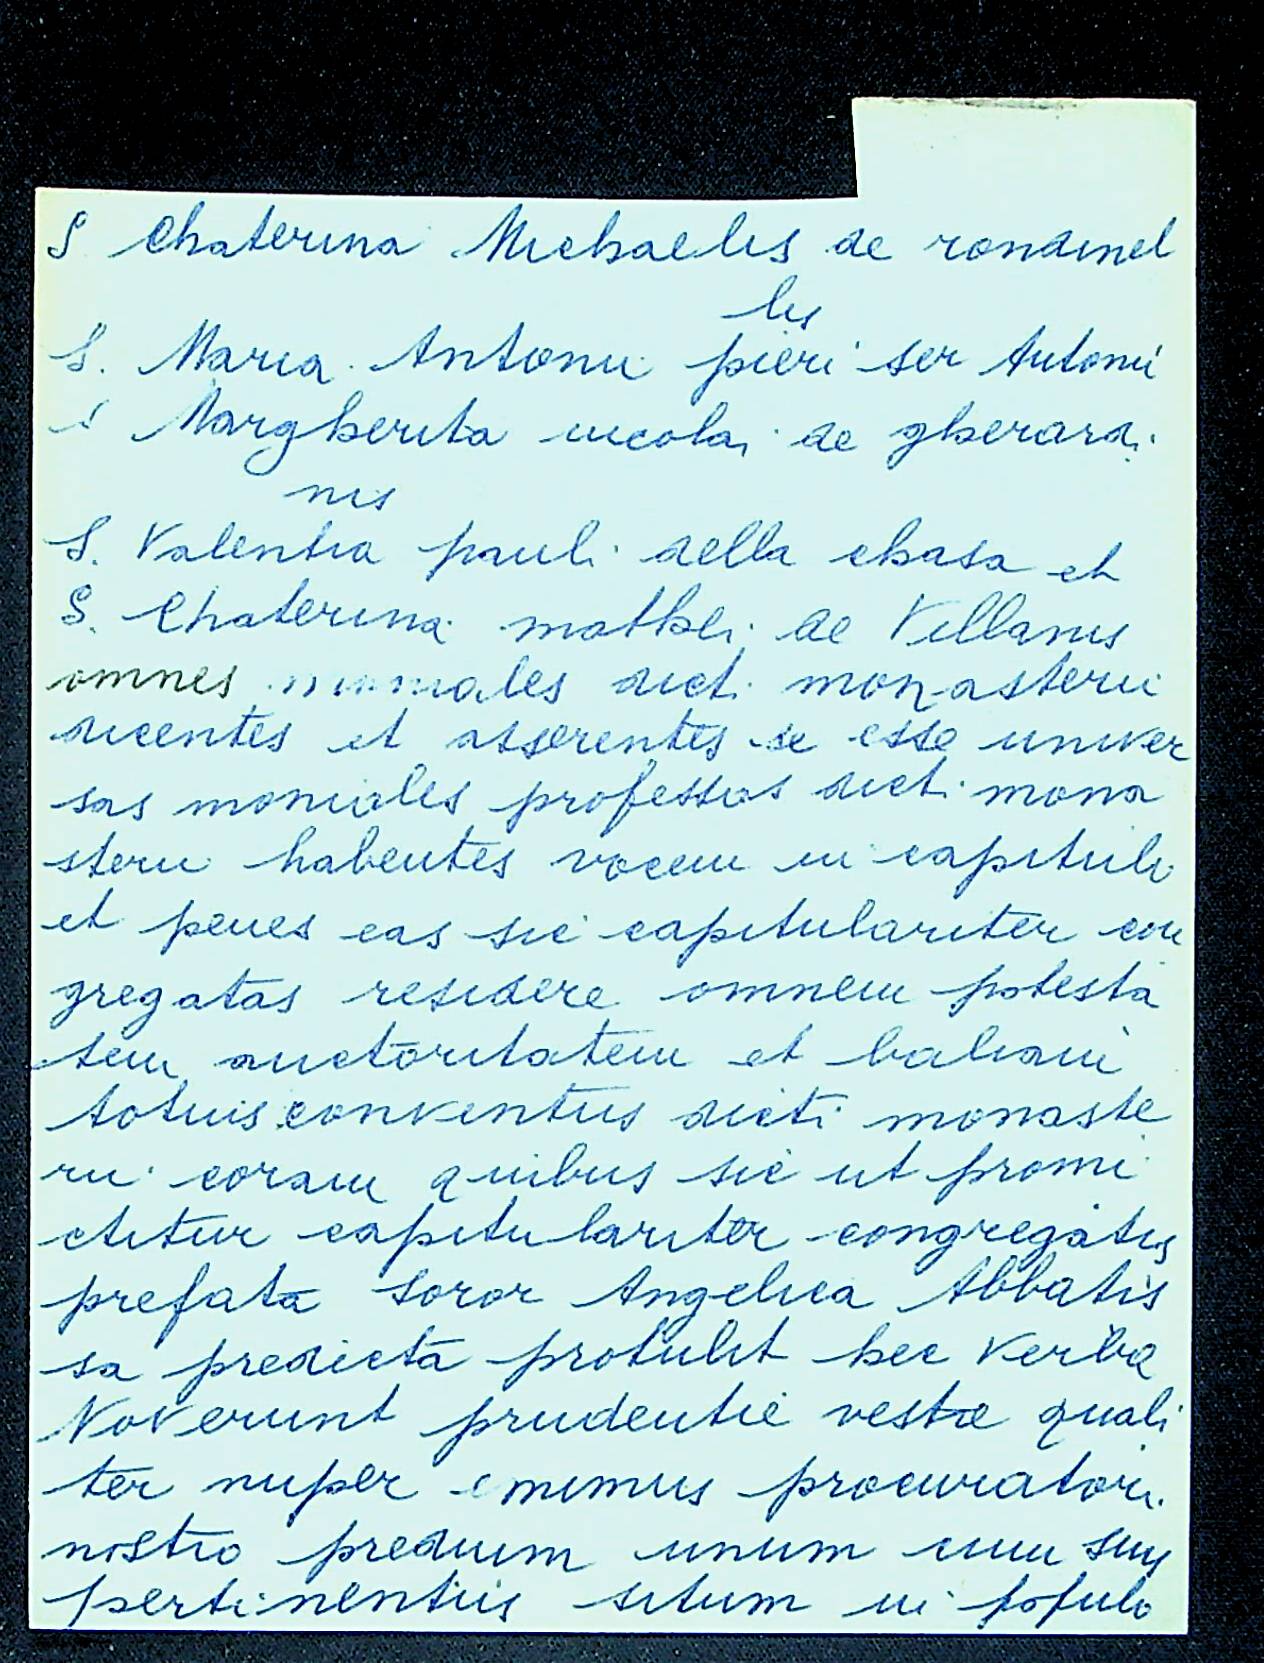 S Chaterina Michaelis de rondinel
lis
S. Maria Antonii pieri ser Antonii
S Margherita nicolai de gherardi
nis
S. Valentia pauli della chasa et
S. Chaterina mathei de Villanis
omnes moniales dicti monasterii
dicentes et asserentes se esse univer
sas moniales professas dicti mona
sterii habentes vocem in capitulo
et penes eas sic capitulariter con
gregatas residere omnem potesta
tem auctoritatem et baliam
totuis conventus dicti monaste
rii coram quibus sic ut premi
ctitur capitulariter congregatis
prefata soror Angelica Abbatis
sa predicta protulit hec verba
Noverunt prudentie vestre quali
ter nuper emimus procuratori
nostro predium unum cum suis
pertinentiis situm in populo